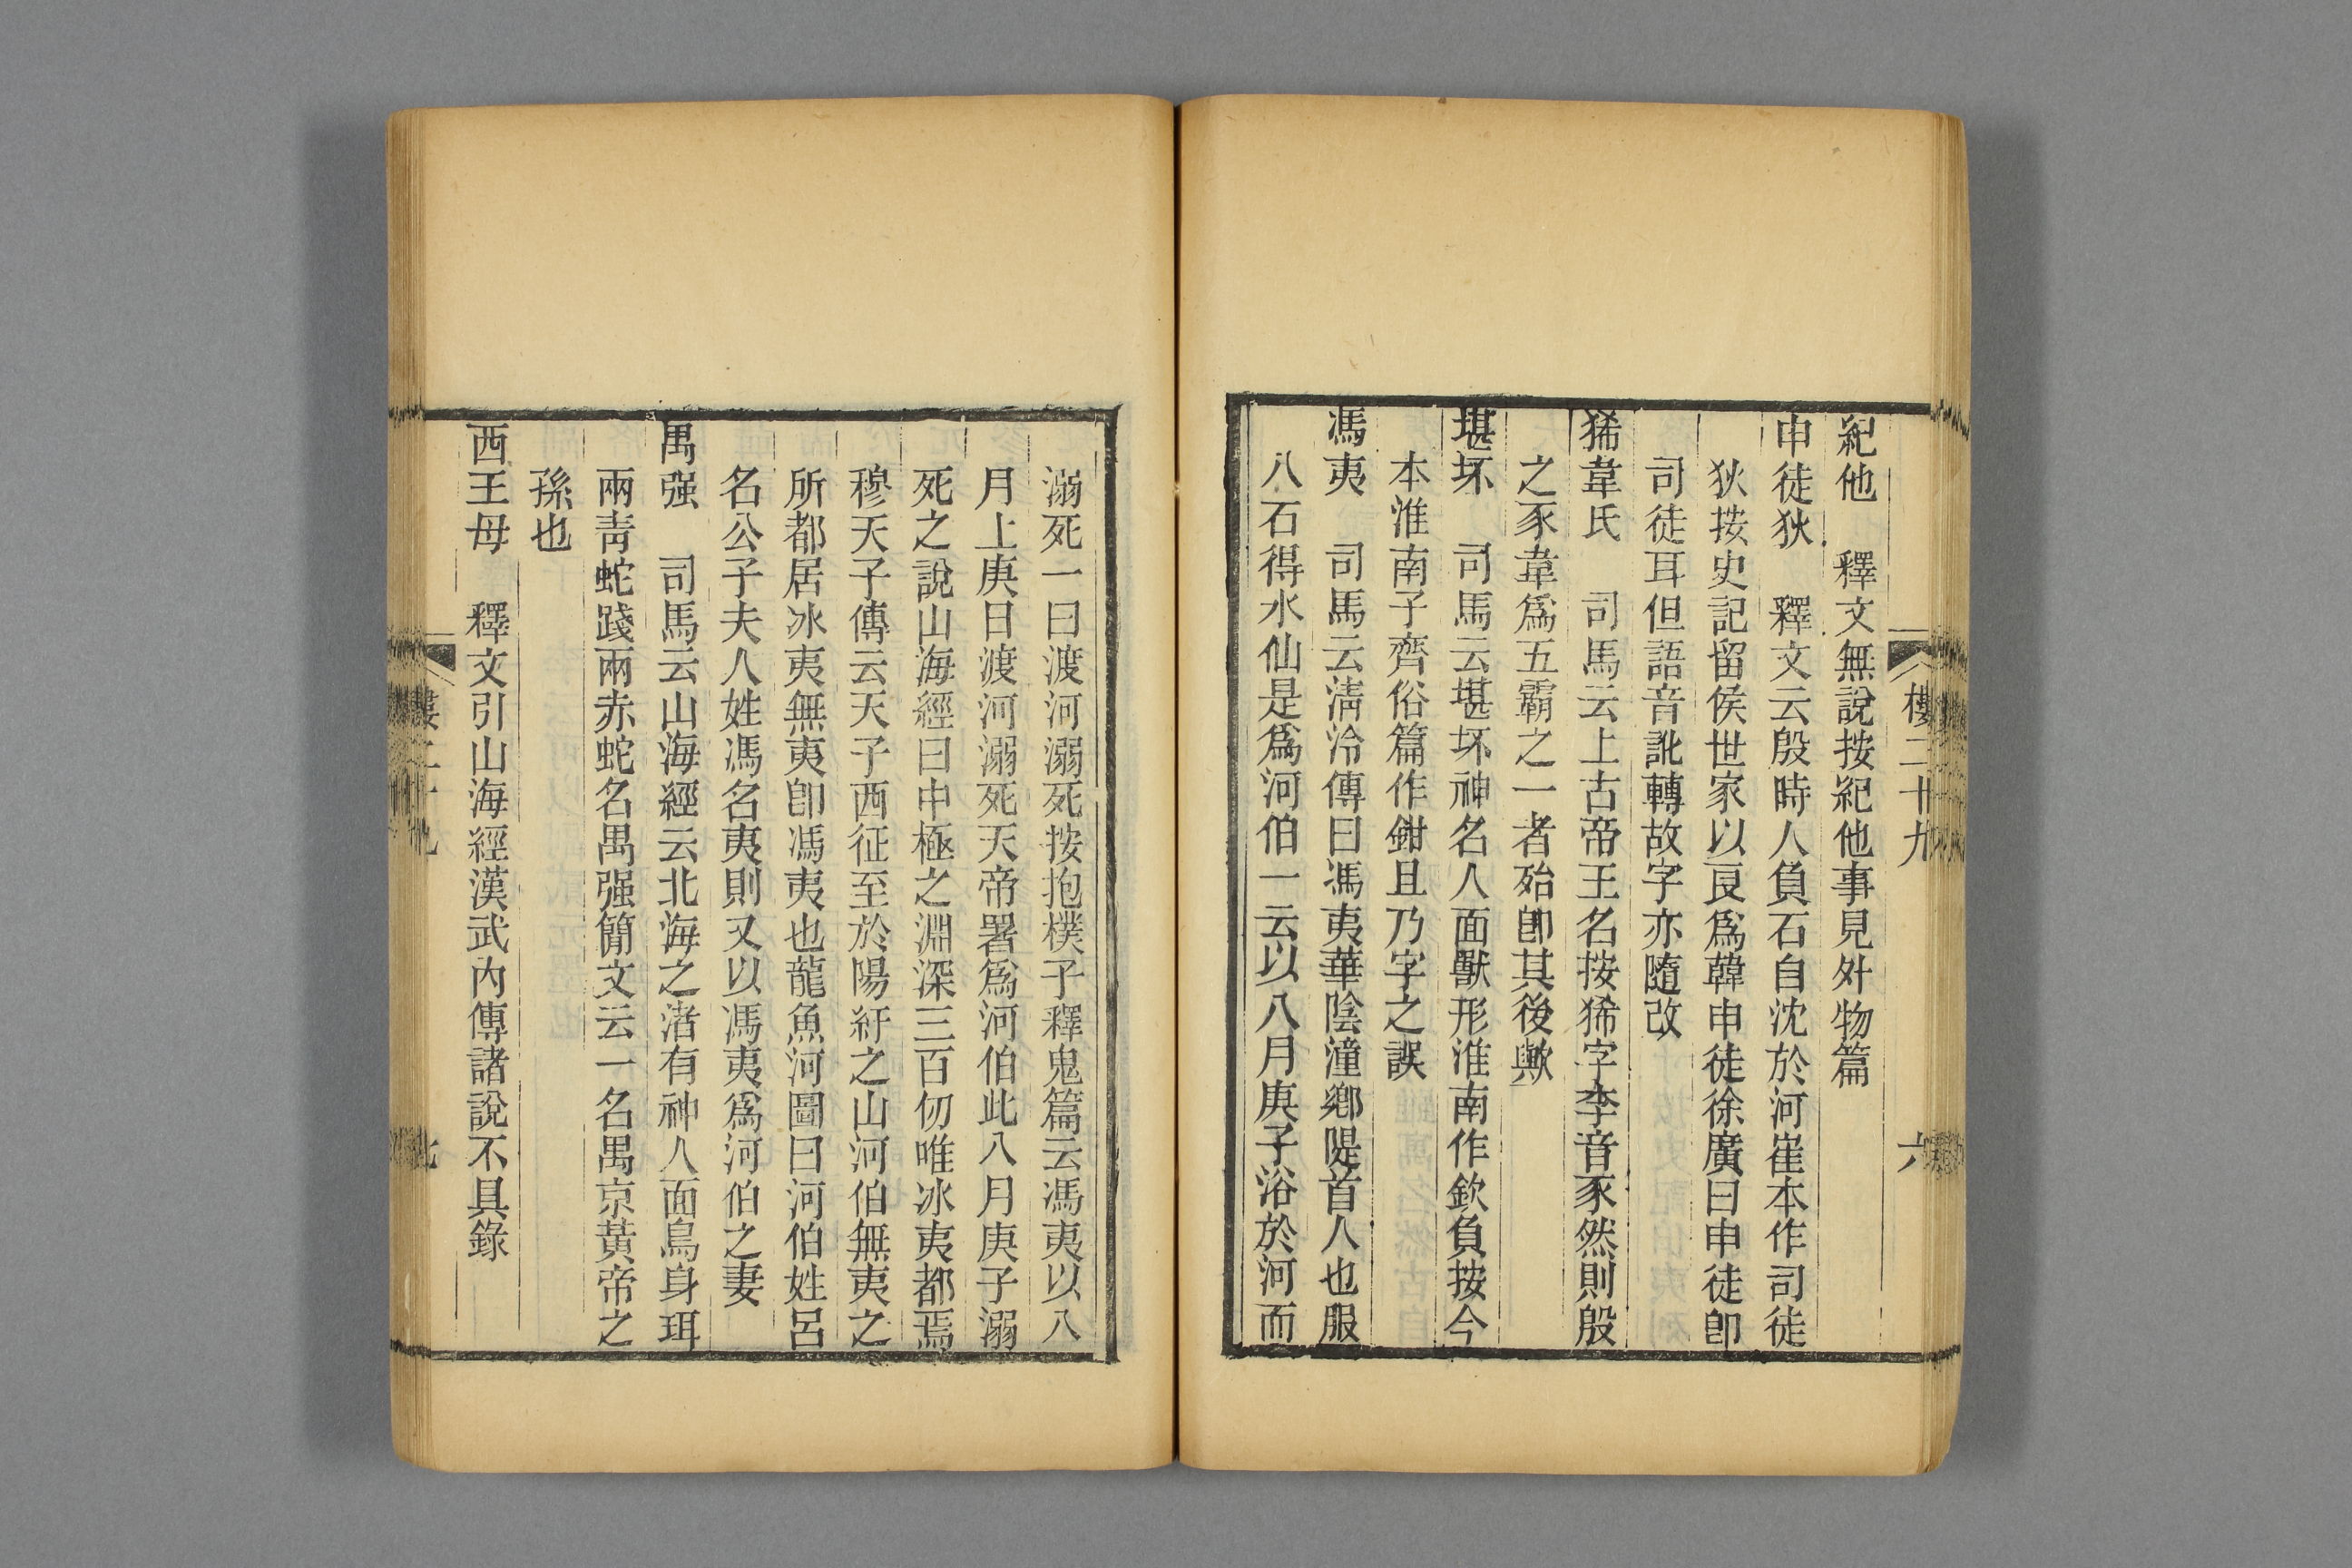 樓二十九　六
紀他　釋文無說按紀他事見外物篇
申徒狄　釋文云殷時人負石自沈於河崔本作司徒
狄按史記留侯世家以良爲韓申徒徐廣曰申徒卽
司徒耳但語音訛轉故字亦隨改
狶韋氏　司馬云上古帝王名按狶字李音豕然則殷
之豕韋爲五霸之一者殆卽其後歟
堪坏　司馬云堪坏神名人面獸形淮南作欽負按今
本淮南子齊俗篇作鉗且乃字之誤
馮夷　司馬云淸泠傳曰馮夷華陰潼鄕隄首人也服
八石得水仙是爲河伯一云以八月庚子浴於河而
溺死一曰渡河溺死按抱樸子釋鬼篇云馮夷以八
月上庚日渡河溺死天帝署爲河伯此八月庚子溺
死之說山海經曰中極之淵深三百仞唯冰夷都焉
穆天子傳云天子西征至於陽紆之山河伯無夷之
所都居冰夷無夷卽馮夷也龍魚河圖曰河伯姓呂
名公子夫人姓馮名夷則又以馮夷爲河伯之妻
禺强　司馬云山海經云北海之渚有神人面鳥身珥
兩靑蛇踐兩赤蛇名禺强簡文云一名禺京黃帝之
孫也
西王母　釋文引山海經漢武內傳諸說不具錄
樓二十九